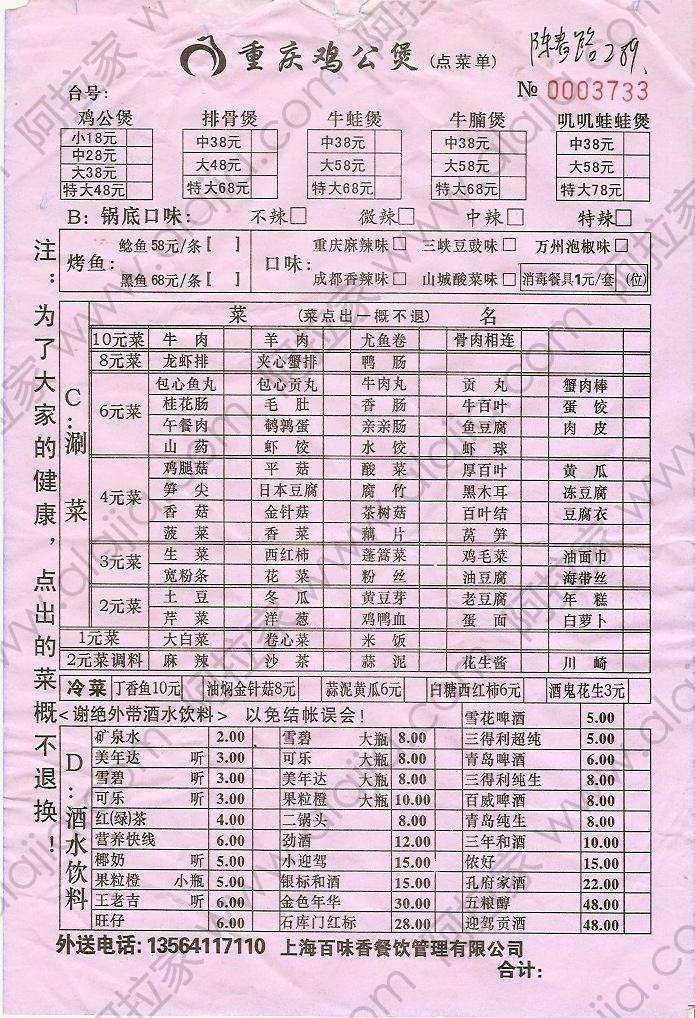 重庆鸡公煲(点菜单)
289.
台号:
№ 0003733
鸡公煲 排骨煲 牛蛙煲 牛腩煲 叽叽蛙蛙煲
小18元 中38元 中38元 中38元 中38元
中28元 大48元 大58元 大58元 大58元
大38元 特大68元 特大68元 特大68元 特大78元
特大48元
B: 锅底口味: 不辣□ 微辣□ 中辣□ 特辣□
烤鱼: 鲶鱼58元/条[ ] 口味: 重庆麻辣味□ 三峡豆豉味□ 万州泡椒味□
黑鱼68元/条[ ] 成都香辣味□ 山城酸菜味□ 消毒餐具1元/套 (位)
注:为了大家的健康,点出的菜概不退换!
C:涮菜
菜 (菜点出一概不退) 名
10元菜 牛肉 羊肉 尤鱼卷 骨肉相连
8元菜 龙虾排 夹心蟹排 鸭肠
6元菜 包心鱼丸 包心贡丸 牛肉丸 贡丸 蟹肉棒
桂花肠 毛肚 香肠 牛百叶 蛋饺
午餐肉 鹌鹑蛋 亲亲肠 鱼豆腐 肉皮
山药 虾饺 水饺 虾球
4元菜 鸡腿菇 平菇 酸菜 厚百叶 黄瓜
笋尖 日本豆腐 腐竹 黑木耳 冻豆腐
香菇 金针菇 茶树菇 百叶结 豆腐衣
菠菜 香菜 藕片 莴笋
3元菜 生菜 西红柿 蓬蒿菜 鸡毛菜 油面巾
宽粉条 花菜 粉丝 油豆腐 海带丝
2元菜 土豆 冬瓜 黄豆芽 老豆腐 年糕
芹菜 洋葱 鸡鸭血 蛋面 白萝卜
1元菜 大白菜 卷心菜 米饭
2元菜调料 麻辣 沙茶 蒜泥 花生酱 川崎
冷菜 丁香鱼10元 油焖金针菇8元 蒜泥黄瓜6元 白糖西红柿6元 酒鬼花生3元
<谢绝外带酒水饮料> 以免结帐误会! 雪花啤酒 5.00
D:酒水饮料
矿泉水 2.00 雪碧 大瓶 8.00 三得利超纯 5.00
美年达 听 3.00 可乐 大瓶 8.00 青岛啤酒 6.00
雪碧 听 3.00 美年达 大瓶 8.00 三得利纯生 8.00
可乐 听 3.00 果粒橙 大瓶 10.00 百威啤酒 8.00
红(绿)茶 4.00 二锅头 8.00 青岛纯生 8.00
营养快线 6.00 劲酒 12.00 三年和酒 10.00
椰奶 听 5.00 小迎驾 15.00 侬好 15.00
果粒橙 小瓶 5.00 银标和酒 15.00 孔府家酒 22.00
王老吉 听 6.00 金色年华 30.00 五粮醇 48.00
旺仔 6.00 石库门红标 28.00 迎驾贡酒 48.00
外送电话: 13564117110 上海百味香餐饮管理有限公司
合计:
阿拉家 www.alajia.com